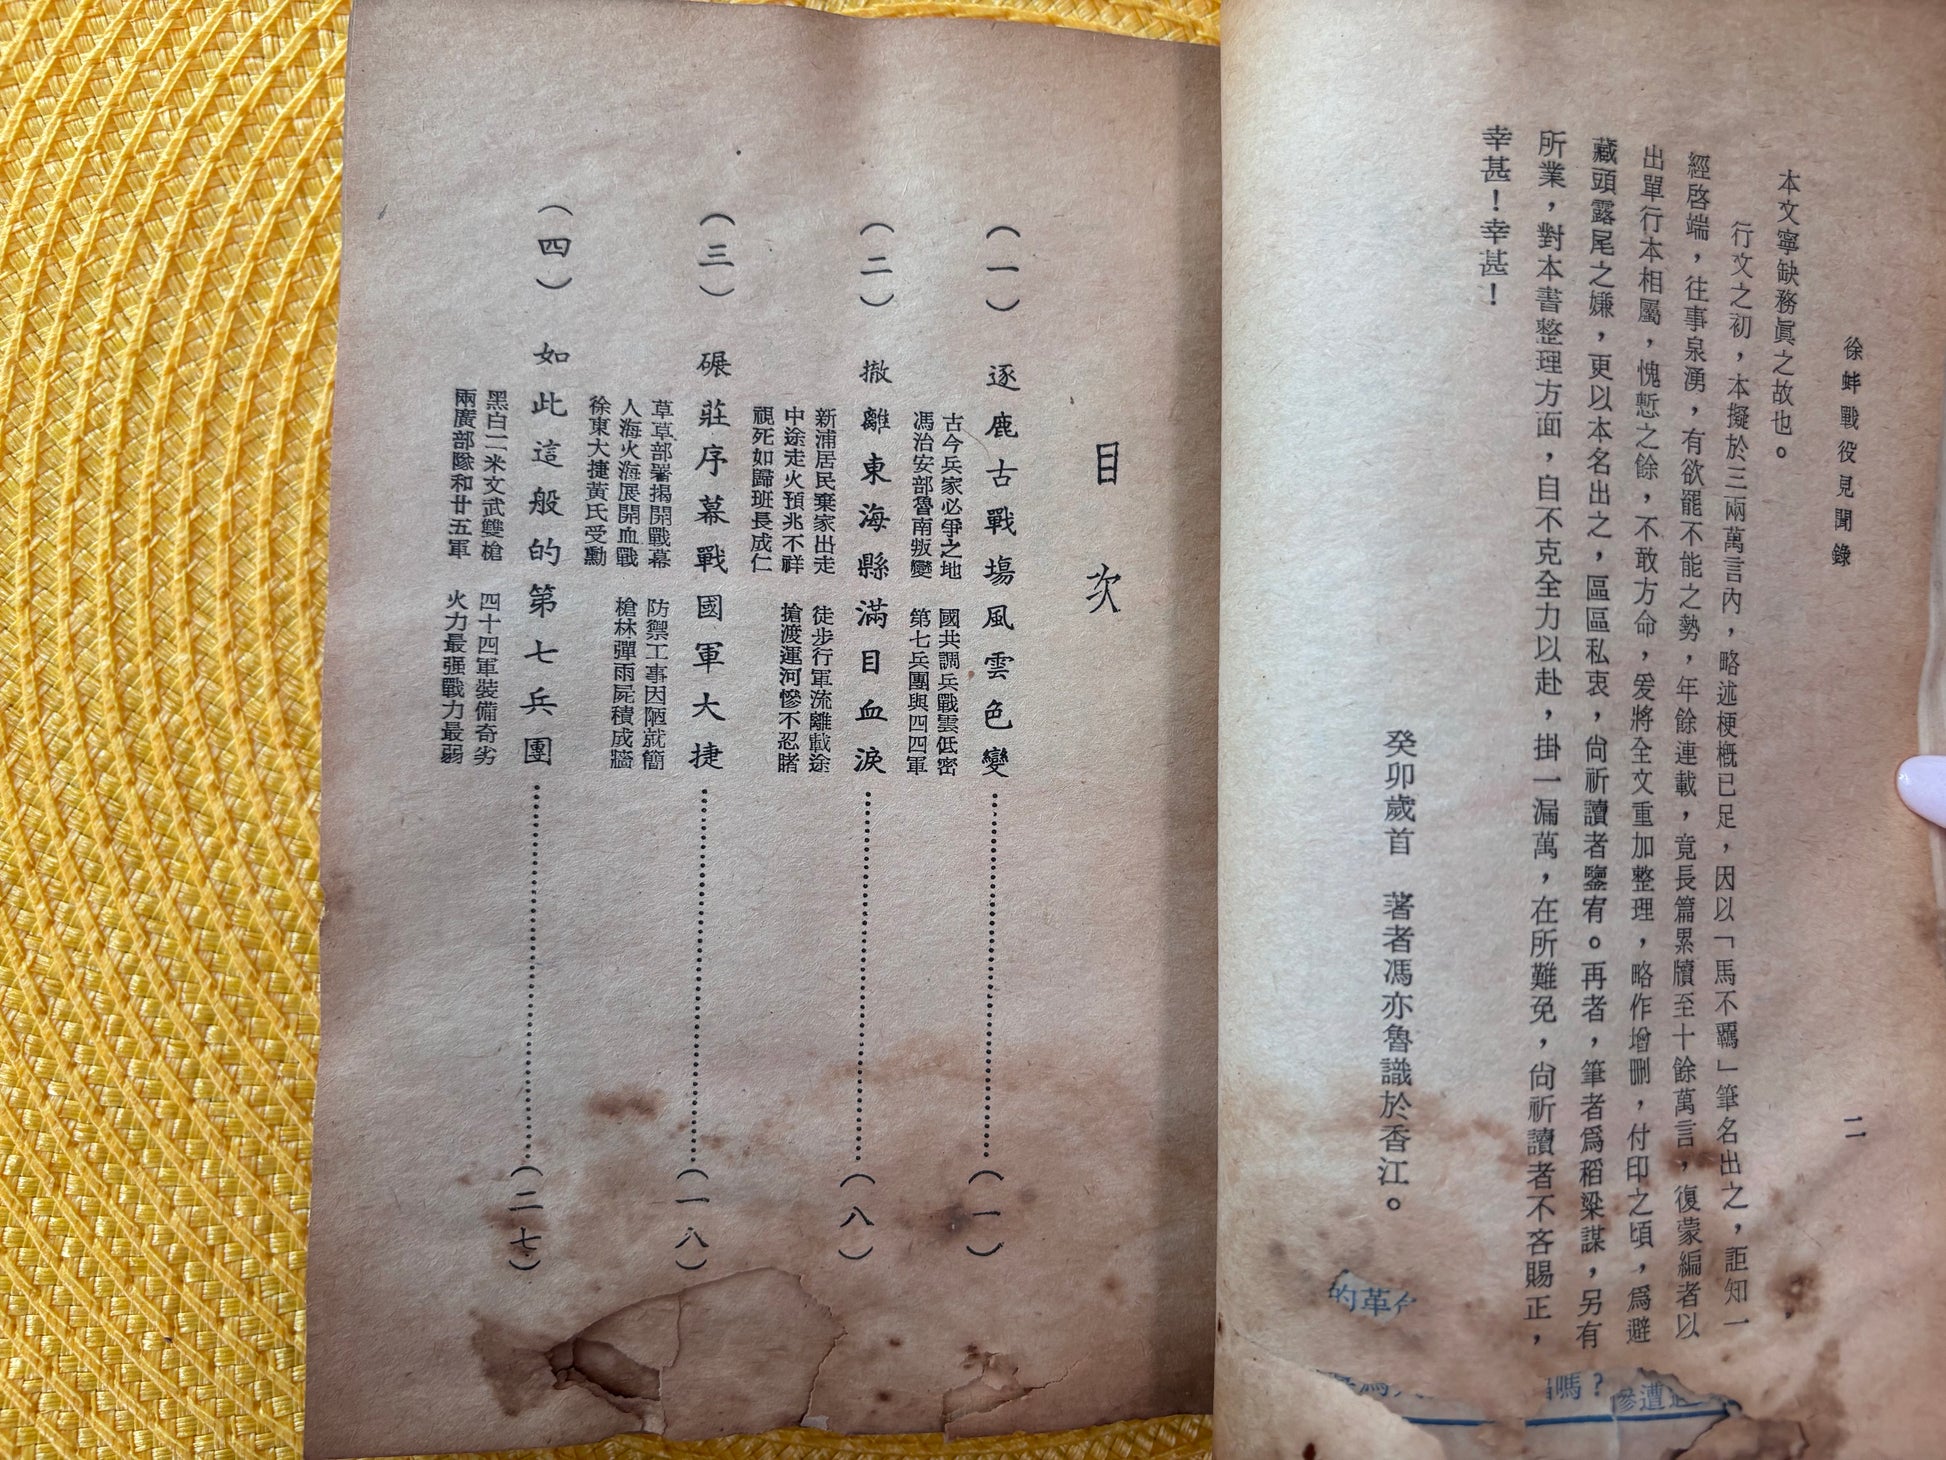 徐蚌戰役見聞錄
二
本文寧缺務眞之故也。
行文之初，本擬於三兩萬言內，略述梗槪已足，因以「馬不羈」筆名出之，詎知一
經啓端，往事泉湧，有欲罷不能之勢，年餘連載，竟長篇累牘至十餘萬言，復蒙編者以
出單行本相屬，愧慙之餘，不敢方命，爰將全文重加整理，略作增删，付印之頃，爲避
藏頭露尾之嫌，更以本名出之，區區私衷，尙祈讀者鑒宥。再者，筆者爲稻粱謀，另有
所業，對本書整理方面，自不克全力以赴，掛一漏萬，在所難免，尙祈讀者不吝賜正，
幸甚！幸甚！
癸卯歲首　著者馮亦魯識於香江。
的革
嗎？
慘遭
目次
（一）逐鹿古戰場風雲色變……（一）
古今兵家必爭之地　國共調兵戰雲低密
馮治安部魯南叛變　第七兵團與四四軍
（二）撤離東海縣滿目血淚……（八）
新浦居民棄家出走　徒步行軍流離載途
中途走火預兆不祥　搶渡運河慘不忍睹
視死如歸班長成仁
（三）碾莊序幕戰國軍大捷……（一八）
草草部署揭開戰幕　防禦工事因陋就簡
人海火海展開血戰　槍林彈雨屍積成牆
徐東大捷黃氏受勳
（四）如此這般的第七兵團……（二七）
黑白二米文武雙槍　四十四軍裝備奇劣
兩廣部隊和廿五軍　火力最强戰力最弱